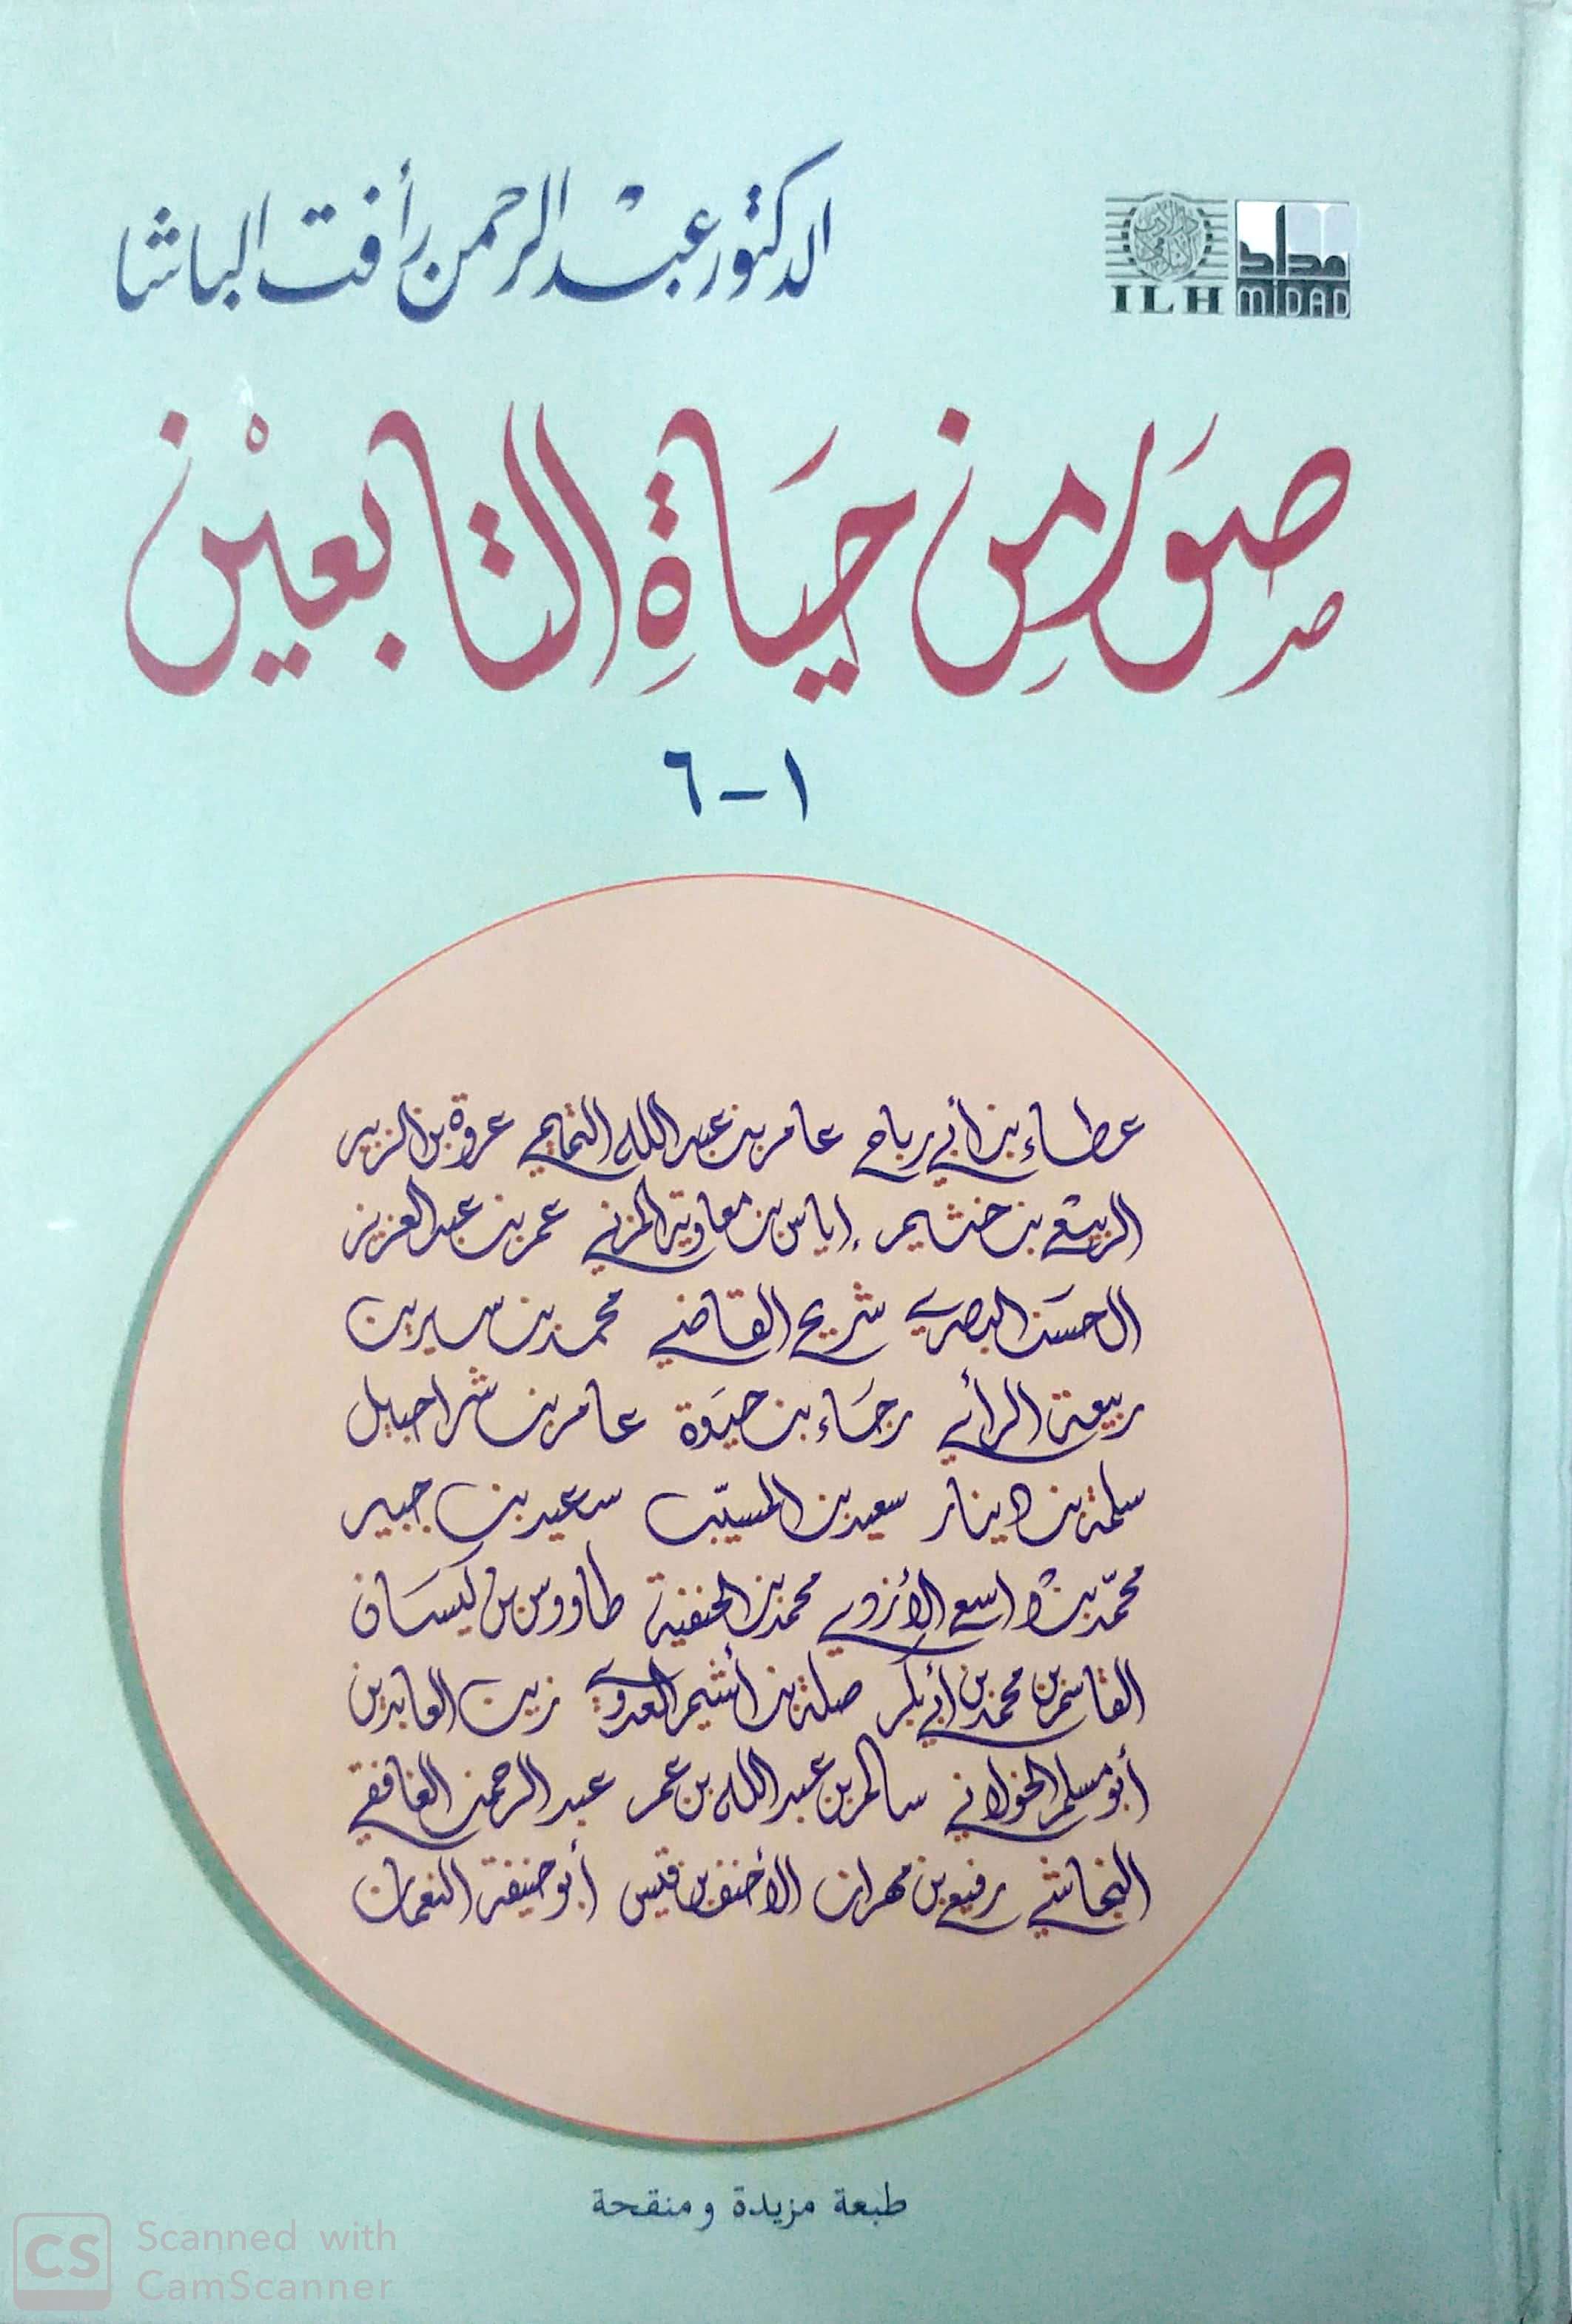 الدكتور عبد الرحمن رأفت الباشا
مداد
ILH MIDAD
صُوَر مِن حَيَاةِ التَّابعيْن
١-٦
عطاء بن أبي رباح عامر بن عبد الله التميمي عروة بن الزبير
الربيع بن خثيم إياس بن معاوية المزني عمر بن عبد العزيز
الحسن البصري شريح القاضي محمد بن سيرين
ربيعة الرأي رجاء بن حيوة عامر بن شراحبيل
سلمة بن دينار سعيد بن المسيّب سعيد بن جبير
محمّد بن واسع الأزدي محمد بن الحنفية طاووس بن كيسان
القاسم بن محمد بن أبي بكر صلة بن أشيم العدوي زين العابدين
أبو مسلم الخولاني سالم بن عبد الله بن عمر عبد الرحمن الغافقي
النجاشي رفيع بن مهران الأحنف بن قيس أبو حنيفة النعمان
طبعة مزيدة ومنقحة
CS Scanned with
CamScanner